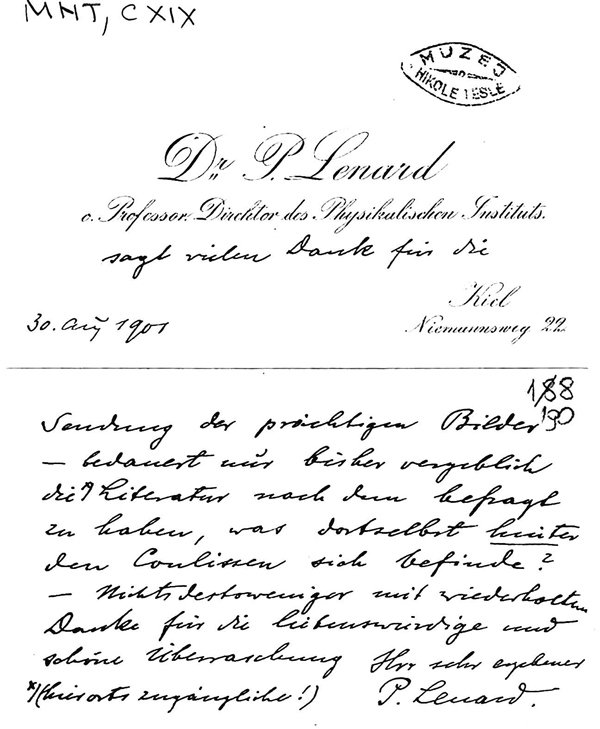 MНT, CXIX
MUZEJ
NIKOLE TESLE
Dr. P. Lenard
o. Professor. Direktor des Physikalischen Instituts.
sagt vielen Dank für die
Kiel
30. Aug 1901
Niemannsweg 22.
188
190
Sendung der prächtigen Bilder
— bedauert nur bisher vergeblich
die *) Literatur nach dem befragt
zu haben, was dortselbst hinter
den Coulissen sich befinde?
— Nichtsdestoweniger mit wiederholtem
Danke für die liebenswürdige und
schöne Überraschung Ihr sehr ergebener
*) (hierorts zugängliche!) P. Lenard.